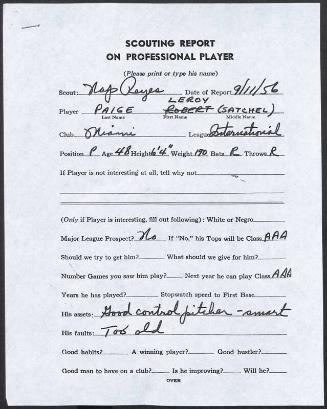 SCOUTING REPORT
ON PROFESSIONAL PLAYER
(Please print or type his name)
Scout: Nap Reyes Date of Report 9/11/56
LEROY
Player PAIGE ROBERT (SATCHEL)
Last Name First Name Middle Name
Club Miami League International
Position P Age 48 Height 6'4" Weight 190 Bats R Throws R
If Player is not interesting at all, tell why not
(Only if Player is interesting, fill out following): White or Negro
Major League Prospect? No If "No," his Tops will be Class AAA
Should we try to get him? What should we give for him?
Number Games you saw him play? Next year he can play Class AAA
Years he has played? Stopwatch speed to First Base
His assets: Good control pitcher - smart
His faults: Too old
Good habits? A winning player? Good hustler?
Good man to have on a club? Is he improving? Will he?
OVER